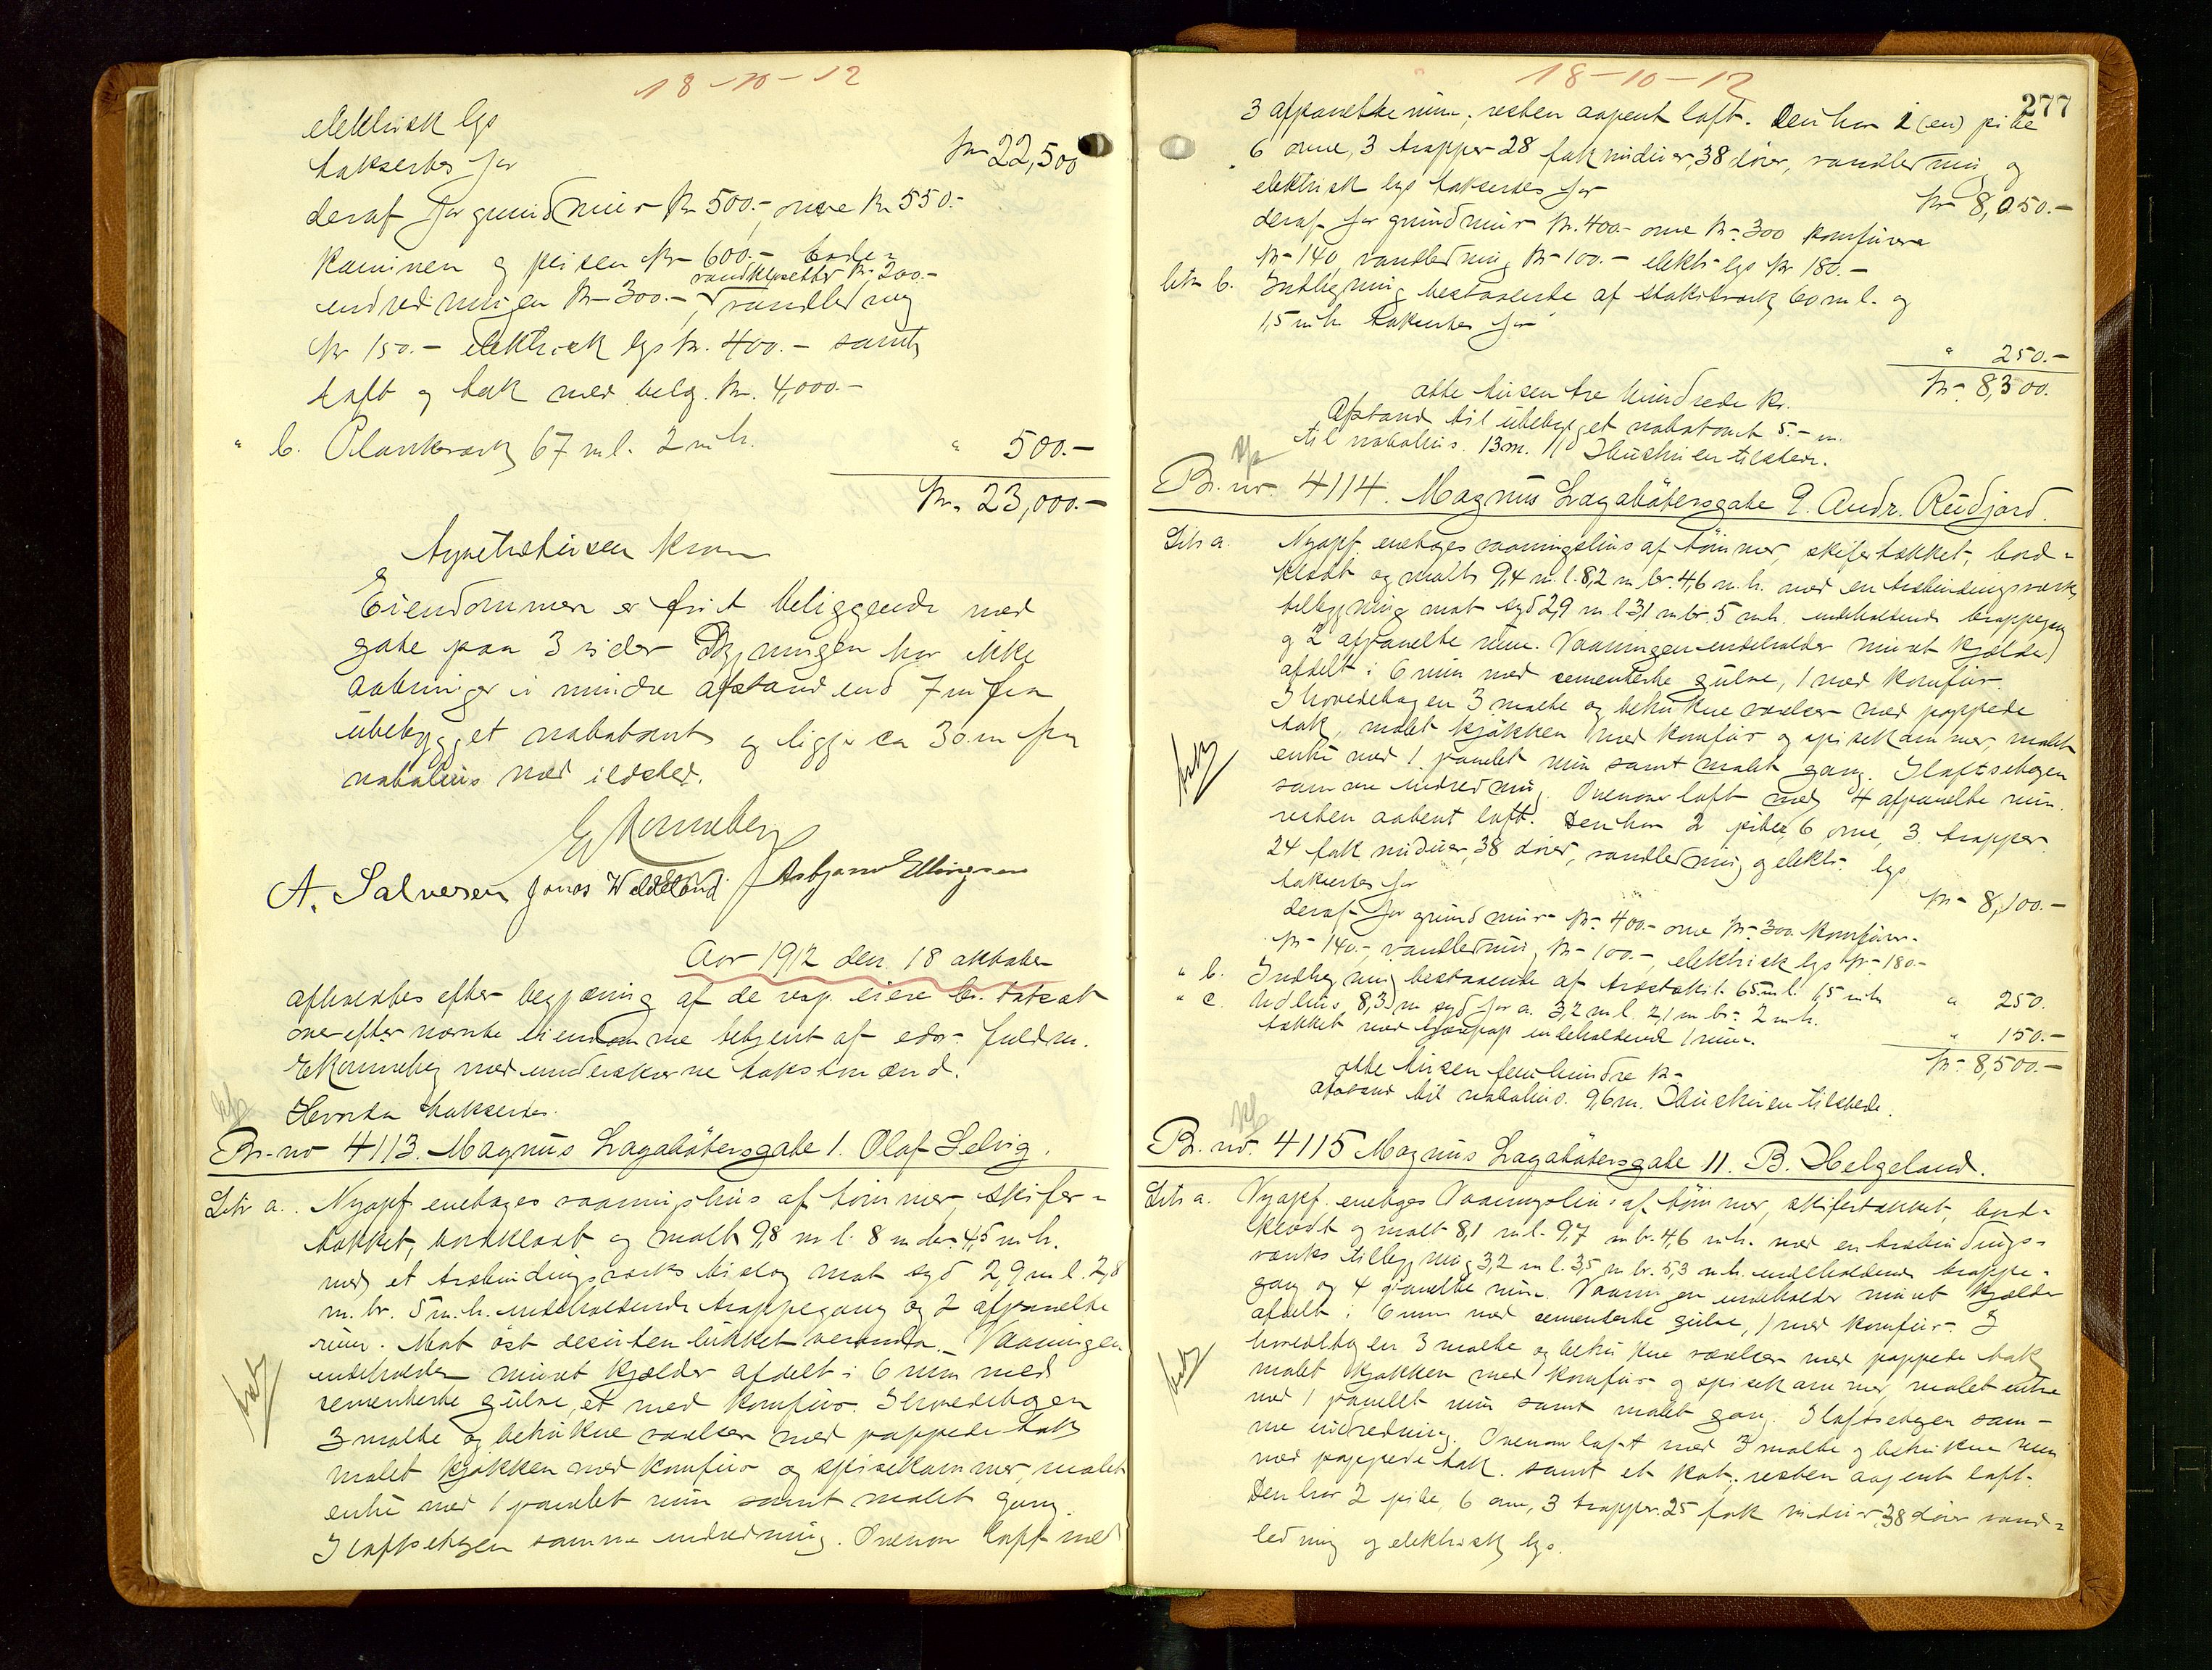 18-10-12
elektrisk lys
takseres for kr 22,500
deraf for grundmur kr 500.- ovne kr 550.-
kaminen og peisen kr 600.- bade-
vandklosetter kr 200.-
indredningen kr 300.-, vandledning
kr 150.- elektrisk lys kr. 400.- samt
Loft og tak med belg. kr. 4,000.-
" b. Plankværk 67 m l. 2 m h. " 500.-
Kr. 23,000.-
tyvetretusen kroner
Eiendommen er frit beliggende med
gate paa 3 sider Bygningen har ikke
aabninger i mindre afstand end 7 m fra
ubebygget nabotomt og ligger ca 30 m fra
nabohus med ildsted.
E Rønneberg
A. Salvesen Jonas Weldeland Asbjørn Ellingsen
Aar 1912 den 18 oktober
afholdtes efter begjæring af de resp. eiere br. takst
over efter nævnte eiendomme betjent af edsv. fuldm.
E Rønneberg med underskrevne takstmænd.
Hvorda takseres.
Br. no 4113. Magnus Lagabøtersgate 1. Olaf Selvig.
Litr a. Nyopf. enetages vaaningshus af tømmer, skifer-
tækket, bordklædt og malt 9,8 m l. 8 m br. 4,5 m h.
med et træbindingsværks tilslag mot syd 2,9 m l. 2,8
m. br. 5 m. h. indeholdende trappegang og 2 afpanelte
rum. Mot øst desuten lukket veranda. Vaaningen
indeholder muret kjælder afdelt i 6 rum med
sementerte gulve, et med komfur. I hovedetagen
3 malte og betrukne værelser med pappede tak
malet kjøkken med komfur og spisekammer, malet
entre med 1 panelet rum samt malet gang.
I loftsetagen samme indredning. Ovenover loft med
18-10-12
277
3 afpanelte rum, resten aapent loft. Den har 1 (en) pibe
6 ovne, 3 trapper 28 fak vinduer, 38 døre, vandledning og
elektrisk lys takseres for kr 8,050.-
deraf for grundmur kr. 400.- ovne kr. 300 komfurer
kr 140, vandledning kr 100.- elektr lys kr 180.-
Litr b. Indhegning bestaaende af stakitværk 60 m l. og
1,5 m h. takseres for " 250.-
kr. 8,300.
otte tusen tre hundrede kr.
Afstand til ubebygget nabotomt 5.- m.
til nabohus 13 m. Ildslukn. er tilstede.
Br. no. 4114. Magnus Lagabøtersgate 9. Andr. Rudjord.
Litr a. Nyopf. enetages vaaningshus af tømmer, skifertækket, bord-
klædt og malt 9,4 m. l. 8,2 m br. 4,6 m. h. med en træbindingsværk
tilbygning mot syd 2,9 m l 3,1 m br. 5 m h. indeholdende trappegang
og 2 afpanelte rum. Vaaningen indeholder muret kjælder
afdelt i 6 rum med sementerte gulve, 1 med komfur.
I hovedetagen 3 malte og betrukne værelser med pappede
tak, malet kjøkken med komfur og spisekammer, malet
entre med 1. panelet rum samt malet gang. I loftsetagen
samme indredning. Ovenover loft med 4 afpanelte rum.
resten aabent loft. Den har 2 piber, 6 ovne, 3 trapper
24 fak vinduer, 38 døre, vandledning og elektr. lys
takseres for kr 8,100.-
deraf for grundmur kr. 400.- ovne kr. 300. komfurer
kr 140.-, vandledning kr 100.-, elektrisk lys kr 180.-
" b. Indhegning bestaaende af træstakit 65 m l. 1,5 m h " 250.
" c. Udhus 8,3 m syd for a. 3,2 m l. 2,1 m br. 2 m h.
tækket med tjærepap indeholdende 1 rum. " 150.-
kr. 8,500.-
otte tusen femhundre kr
afstand til nabohus. 9,6 m. Ildslukn. er tilstede.
Br. no. 4115 Magnus Lagabøtersgate 11. B. Helgeland.
Litr a. Nyopf. enetages Vaaningshus af tømmer, skifertækket, bord-
klædt og malt 8,1 m l. 9,7 m br. 4,6 m h. med en træbindings-
værks tilbygning 3,2 m l. 3,5 m br. 5,3 m h. indeholdende trappe-
gang og 4 panelte rum. Vaaningen indeholder muret kjælder
afdelt i 6 rum med sementerte gulve, 1 med komfur. I
hovedetagen 3 malte og betrukne værelser med pappede tak
malet kjøkken med komfur og spisekammer, malet entre
med 1 panelet rum samt malet gang. I loftsetagen sam-
me indredning. Ovenover loft med 3 malte og betrukne rum
med pappede tak. samt et kot, resten aapent loft.
Den har 2 piber, 6 ovne, 3 trapper 25 fak vinduer 38 døre vand-
ledning og elektrisk lys.